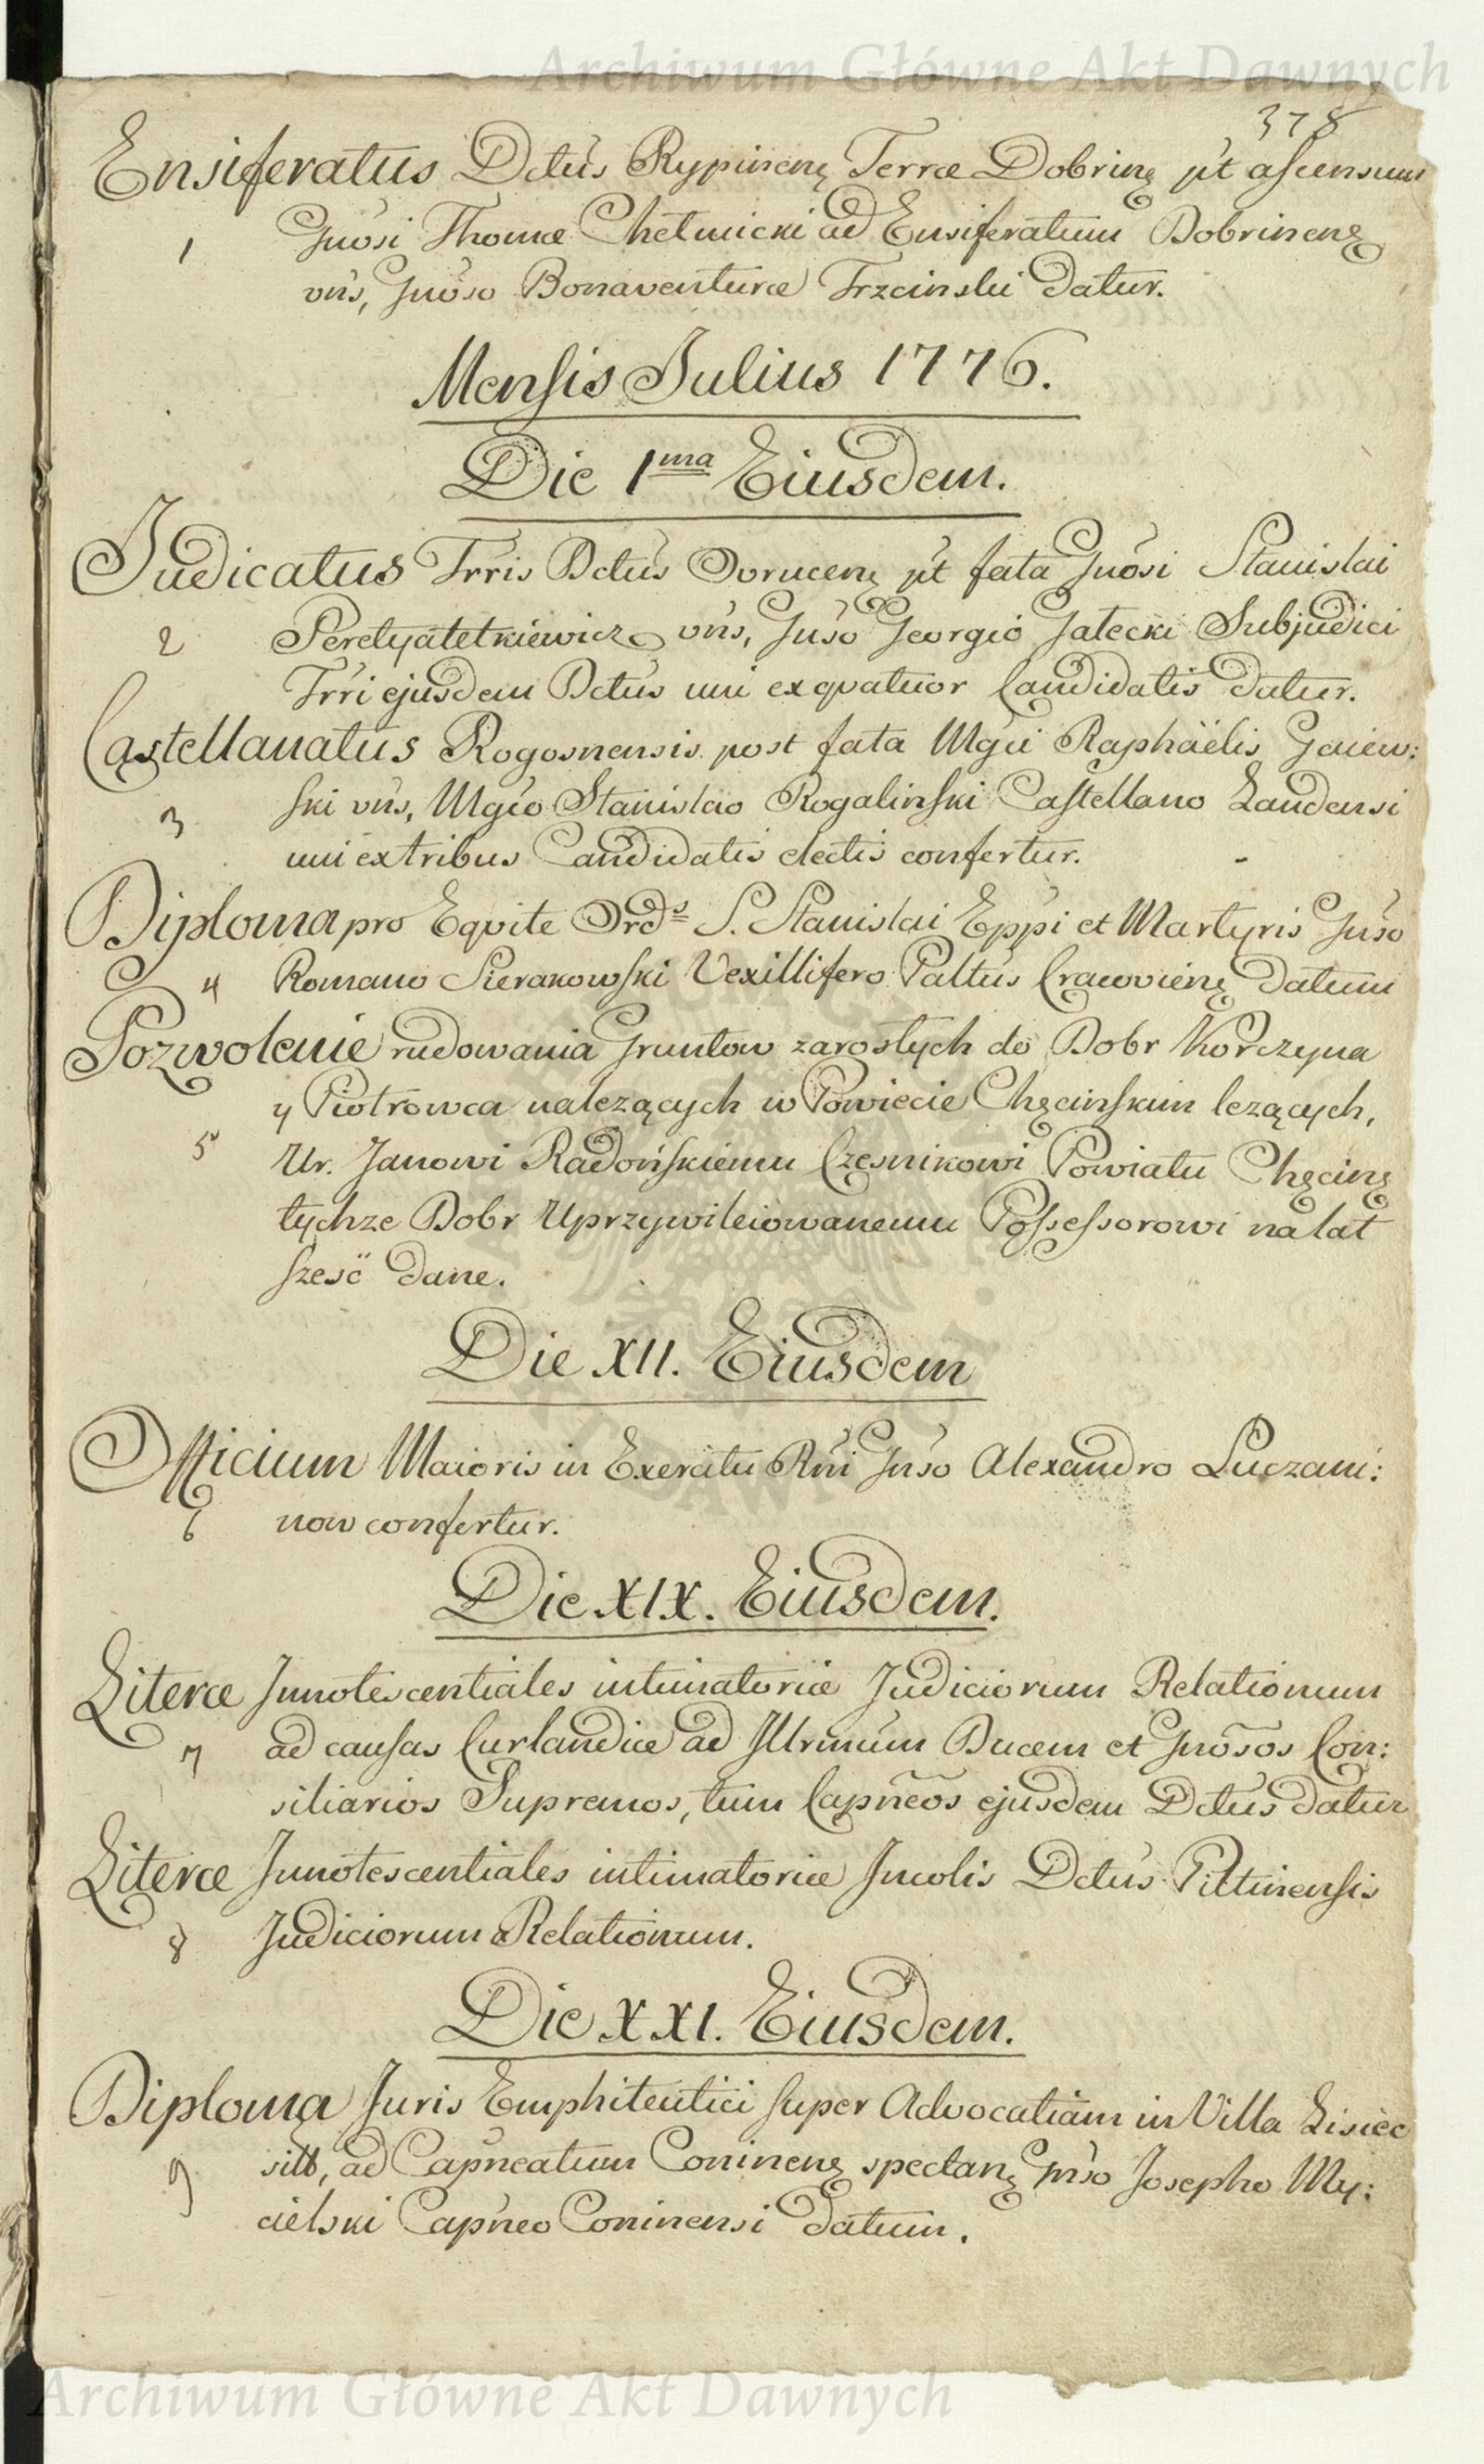 Archiwum Główne Akt Dawnych
378
Ensiferatus Dctus Rypinenę Terræ Dobrinę pt ascensum
1 Gnosi Thomæ Chełmicki ad Ensiferatum Dobrinenę
vñs, Gnoso Bonaventuræ Trzcinski datur.
Mensis Julius 1776.
Die 1ma Eiusdem.
Judicatus Trris Dctus Ovrucenę pt fata Gnosi Stanislai
2 Peretyatetkiewicz vñs, Gnso Georgio Jałecki Subjudici
Trri ejusdem Dctus uni exqvatuor Candidatis datur.
Castellanatus Rogosnensis post fata Mgci Raphaëlis Gaiew:
3 ski vñs, Mgco Stanislao Rogalinski Castellano Landensi
uni extribus Candidatis electis confertur.
Diploma pro Eqvite Ords S. Stanislai Eppi et Martyris Gnso
4 Romano Sierakowski Vexillifero Paltus Cracovienę datum
Pozwolenie rudowania Gruntow zarosłych do Dobr Korczyna
y Piotrowca nalezących w Powiecie Chęcinskim lezących,
5 Ur. Janowi Radońskiemu Czesnikowi Powiatu Chęcinę
tychze Dobr Uprzywileiowanemu Possessorowi na lat
szesć dane.
Die XII. Eiusdem
Officium Maioris in Exercitu Rni Gnso Alexandro Łuczani:
6 now confertur.
Die XIX. Eiusdem.
Literæ Innotescentiales intimatoriæ Judiciorum Relationum
7 ad causas Curlandiæ ad Illrmum Ducem et Gnosos Con:
siliarios Supremos, tum Capñeos ejusdem Dctus datur
Literæ Innotescentiales intimatoriæ Incolis Dctus Piltinensis
8 Judiciorum Relationum.
Die XXI. Eiusdem.
Diploma Juris Emphiteutici super Advocatiam in Villa Lisiec
9 sitt, ad Capñeatum Coninenę spectanę Gnso Josepho My:
cielski Capñeo Coninensi datum.
Archiwum Główne Akt Dawnych